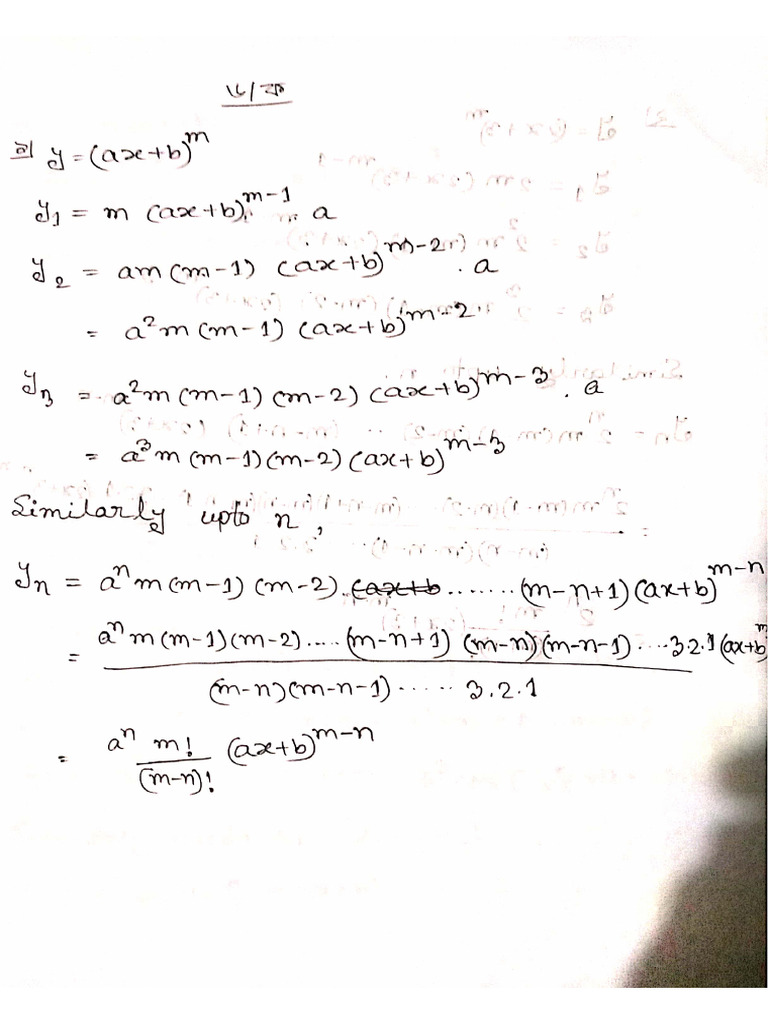 ৩/ক
১| y = (ax+b)^m
y₁ = m (ax+b)^{m-1} . a
y₂ = am (m-1) (ax+b)^{m-2} . a
= a²m (m-1) (ax+b)^{m-2}
y₃ = a²m (m-1) (m-2) (ax+b)^{m-3} . a
= a³m (m-1) (m-2) (ax+b)^{m-3}
Similarly upto n,
yₙ = aⁿ m (m-1) (m-2) . (ax+b ....... (m-n+1) (ax+b)^{m-n}
= aⁿ m (m-1) (m-2) ..... (m-n+1) (m-n) (m-n-1) ..... 3.2.1 (ax+b)^m
(m-n) (m-n-1) ...... 3.2.1
= aⁿ m! / (m-n)! (ax+b)^{m-n}